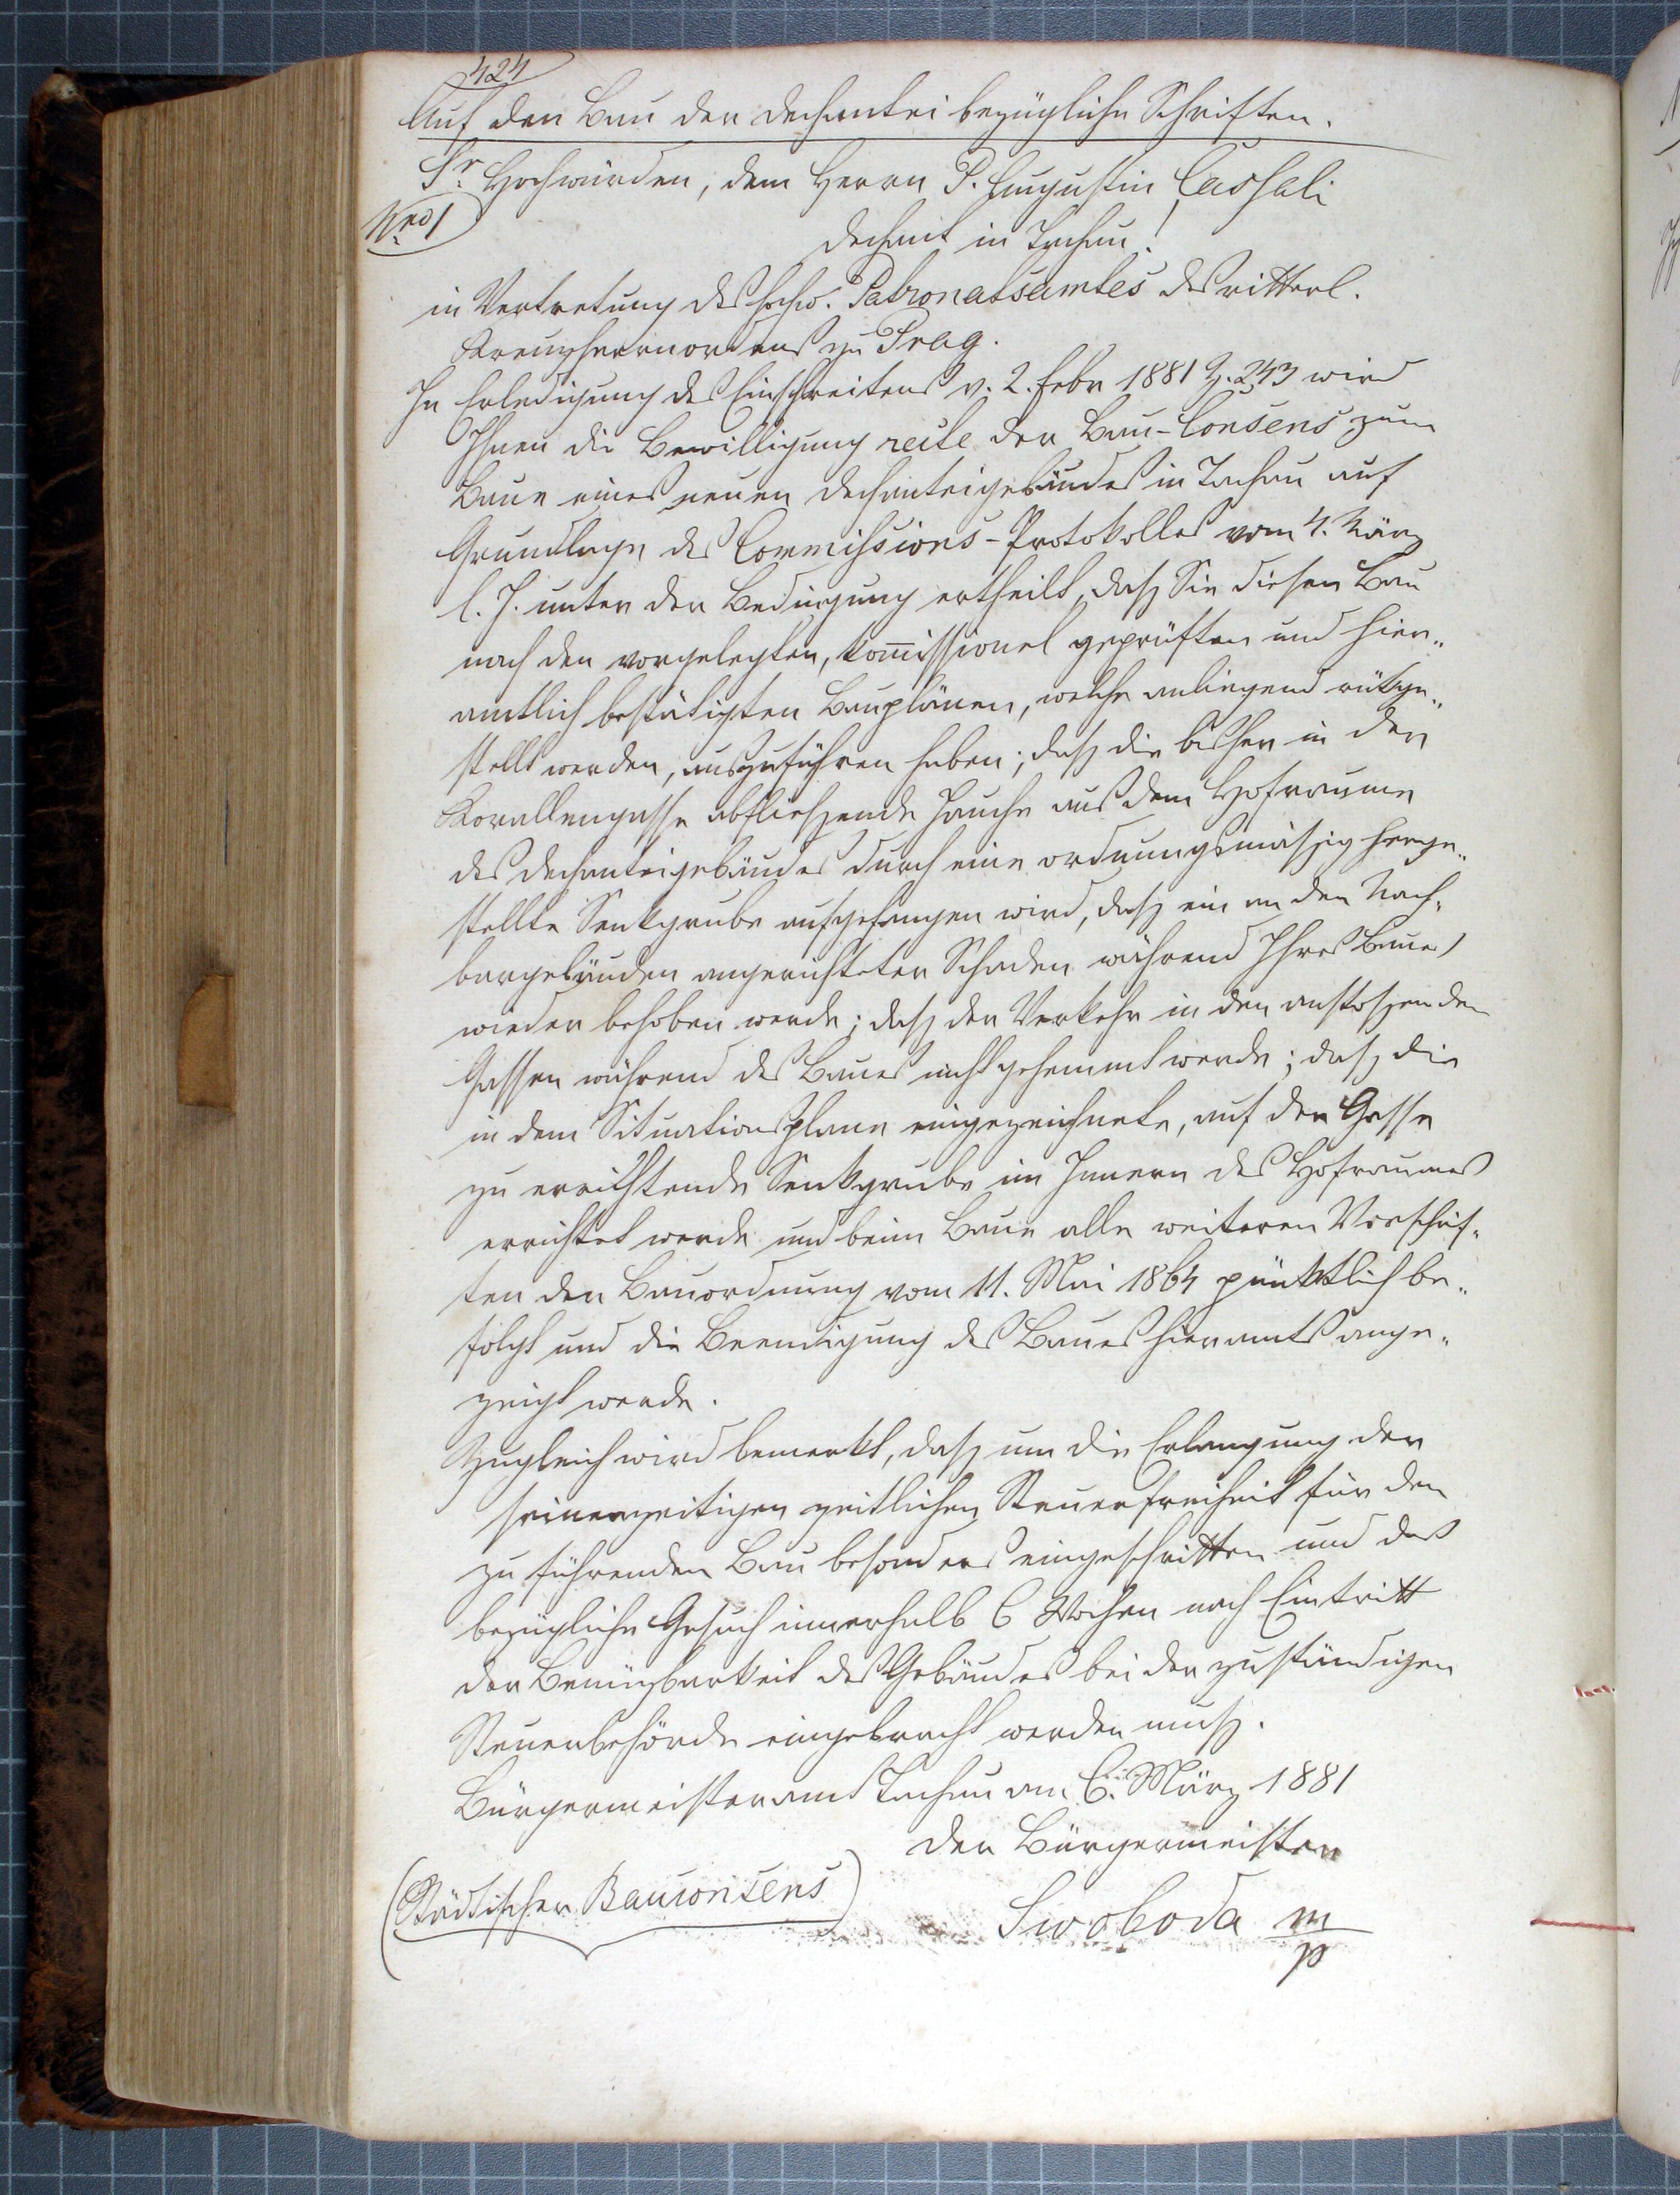 424
Auf den Bau der Dechantei bezügliche Schriften.
Sr. Hochwürden, dem Herrn P. Augustin Cassali
Nro 1
Dechant in Tachau!
in Vertretung des hochw. Patronatsamtes des ritterl.
Kreuzherrnordens zu Prag.
In Erledigung des Einschreitens v. 2. Febr 1881 Z. 243 wird
Ihnen die Bewilligung recte der Bau-Consens zum
Baue eines neuen Dechanteigebäudes in Tachau auf
Grundlage des Commissions-Protokolles vom 4. März
l. J. unter der Bedingung ertheilt, dass Sie diesen Bau
nach den vorgelegten, kom̄issionel geprüften und hier„
amtlich bestätigten Bauplänen, welche anliegend rükge„
stellt werden, auszuführen haben; dass die bisher in der
Korallengasse abfliessende Jauche aus dem Hofraume
des Dechanteigebäudes durch eine ordnungsmässig herge„
stellte Senkgrube aufgefangen wird, dass ein an den Nach„
bargebäuden angerichteter Schaden während Ihres Baues
wieder behoben werde; dass der Verkehr in den anstossenden
Gassen während des Baues nicht gehemmt werde; dass die
in dem Situationsplane eingezeichnete, auf der Gasse
zu errichtende Senkgrube im Innern des Hofraumes
errichtet werde und beim Baue alle weiteren Vorschrif„
ten der Bauordnung vom 11. Mai 1864 pünktlich be„
folgt und die Beendigung des Baues hieramts ange„
zeigt werde.
Zugleich wird bemerkt, dass um die Erlangung der
seinerzeitigen zeitlichen Steuerfreiheit für den
zu führenden Bau besonders eingeschritten und das
bezügliche Gesuch innerhalb 6 Wochen nach Eintritt
der Benüzbarkeit des Gebäudes bei der zuständigen
Steuerbehörde eingebracht werden muss.
Bürgermeisteramt Tachau am 6. März 1881
Der Bürgermeister
(Städtischer Bauconsens)
Swoboda m/p